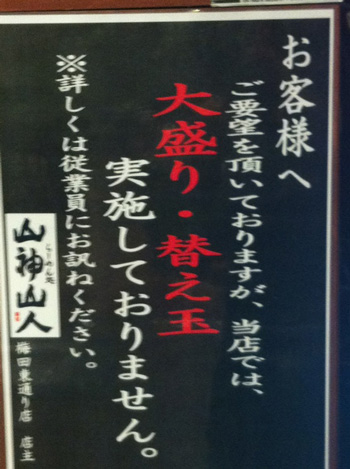 お客様へ
ご要望を頂いておりますが、当店では、
大盛り・替え玉
実施しておりません。
※詳しくは従業員にお訊ねください。
らーめん処
山神山人
梅田東通り店 店主